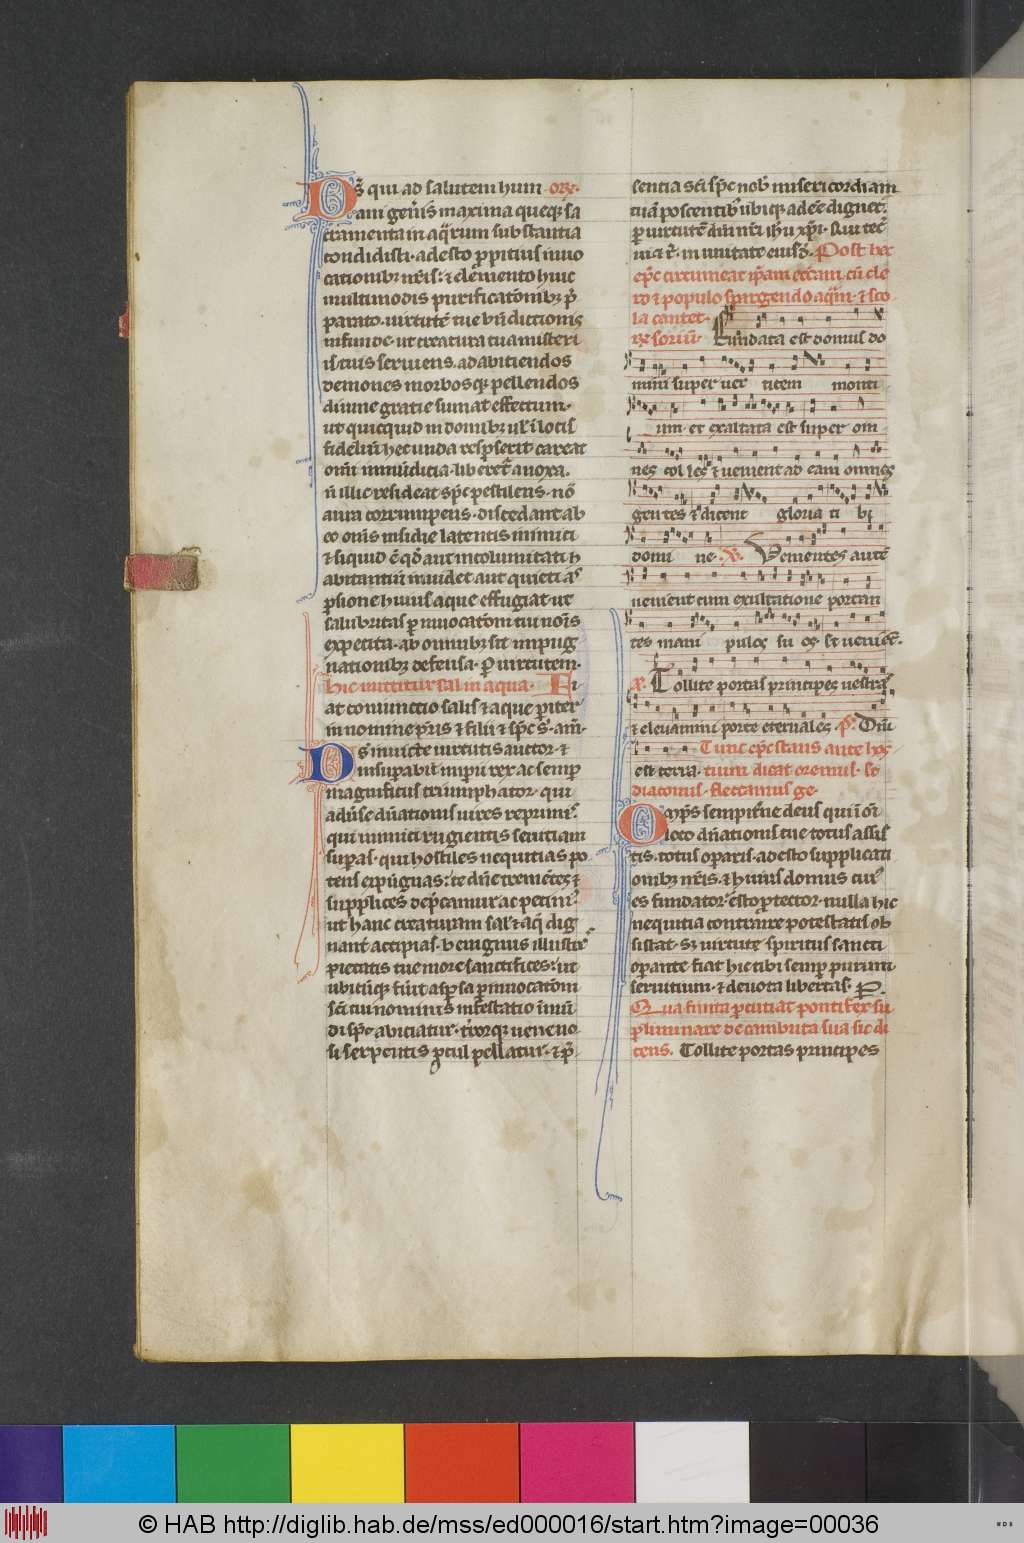 D s̄ qui ad salutem hum orō·
ani gen̄is maxima queq; sa
cramenta in aq̄rum substantia
condidisti· adesto ꝓpitius inuo
cationibꝫ nr̄is· ⁊ elemento huic
multimodis purificatōnibꝫ p̄
parato· uirtutē tue bn̄dictionis
infunde· ut creatura tua misteri
is tuis seruiens ad abiciendos
demones morbosqꝫ pellendos
diuine gratie sumat effectum·
ut quicquid in domibꝫ ul' ī locis
fidelium hec unda resꝑserit careat
om̄i immūdicia· liberet̄ a noxa·
n̄ illic resideat sp̄c pestilens· nō
aura corrumpens· discedant ab
eo om̄s insidie latentis inimici
⁊ siquid ē qd̄ aut incolumitati h
abitantiū inuidet aut quieti as
ꝑsione huius aque effugiat· ut
salubritas ꝑ inuocatōem tui noīs
expetita· ab omnibꝫ sit impug
nationibꝫ defensa· P uirtutem·
hic mittitur sal in aqua· Fi
at comunctio salis ⁊ aque ꝑiter
in nomine pr̄is ⁊ filii ⁊ sp̄c s̄· am̄·
D s̄ inuicte uirtutis auctor· ⁊
insuꝑabil' imperii rex ac semꝑ
magnificus triumphator· qui
adūse dn̄ationis uires reprimis·
qui inimici rugientis seuitiam
suꝑas· qui hostiles nequitias po
tens expūgnas: te dn̄e tremētes ⁊
supplices dep̄camur ac petim'·
ut hanc creaturam sal' ⁊ aq̄ dig
nant̄ accipias· benignus illustr̄
pietatis tue more sanctifices: ut
ubicūqꝫ fūit asꝑsa ꝑ inuocatōem
sc̄i tui nominis infestatio īmū
di sp̄c abiciatur· t'rorqꝫ ueneno
si serpentis ꝓcul pellatur· ⁊ p̄
sentia sc̄i sp̄c nob' misericordiam
tuā poscentibꝰ ubiqꝫ adee dignet̄·
ꝑ uirtutē dn̄i nr̄i ih̄u xp̄i· qui tec̄
uiuit· in unitate eiusd'· Post hec
ep̄c circumeat ip̄am ecc̄am cū cle
ro ⁊ populo spargendo aq̄m· ⁊ sco
la cantet·
℟ soriū· Fundata est domus do
mini super uer ticem monti
um· et exaltata est super om
nes col les ⁊ uenient ad eam omnes
gentes ⁊ dicent gloria ti bi
domi ne· ℣ Venientes autē
uenient cum exultatione portan
tes mani pulos su os· se uenient̄·
A· Tollite portas principes uestras
⁊ eleuamini porte eternales· P̄· Dn̄i
est terra· Tunc ep̄c stans ante hos
tium dicat oremus· se
diaconus· flectamus ge·
O mp̄s sempitn̄e deus qui ī om̄i
loco dn̄ationis tue totus assis
tis· totus oꝑaris· adesto supplicati
onibꝫ nr̄is· ⁊ huius domus cui'
es fundator esto ꝓtector· nulla hic
nequitia contrarie potestatis ob
sistat· sꝫ uirtute spiritus sancti
oꝑante· fiat hic tibi semꝑ purum
seruitium· ⁊ deuota libertas· P·
Qua finita ꝑcutiat pontifex su
ꝑliminare de cambuta sua sic di
cens· Tollite portas principes
© HAB http://diglib.hab.de/mss/ed000016/start.htm?image=00036